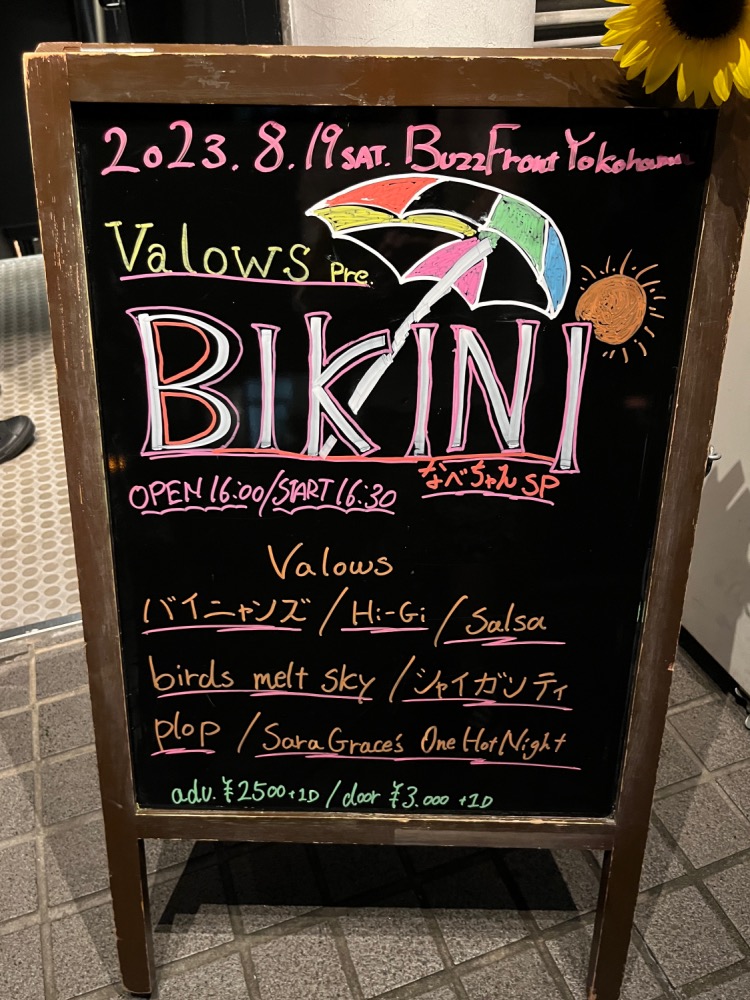 2023.8.19 SAT. BuzzFront Yokohama
Valows Pre.
BIKINI
なべちゃん SP
OPEN 16:00/START 16:30
Valows
バイニャンズ / Hi-Gi / Salsa
birds melt sky / シャイガンティ
plop / Sara Grace's One Hot Night
adv. ¥2500+1D / door ¥3.000 +1D